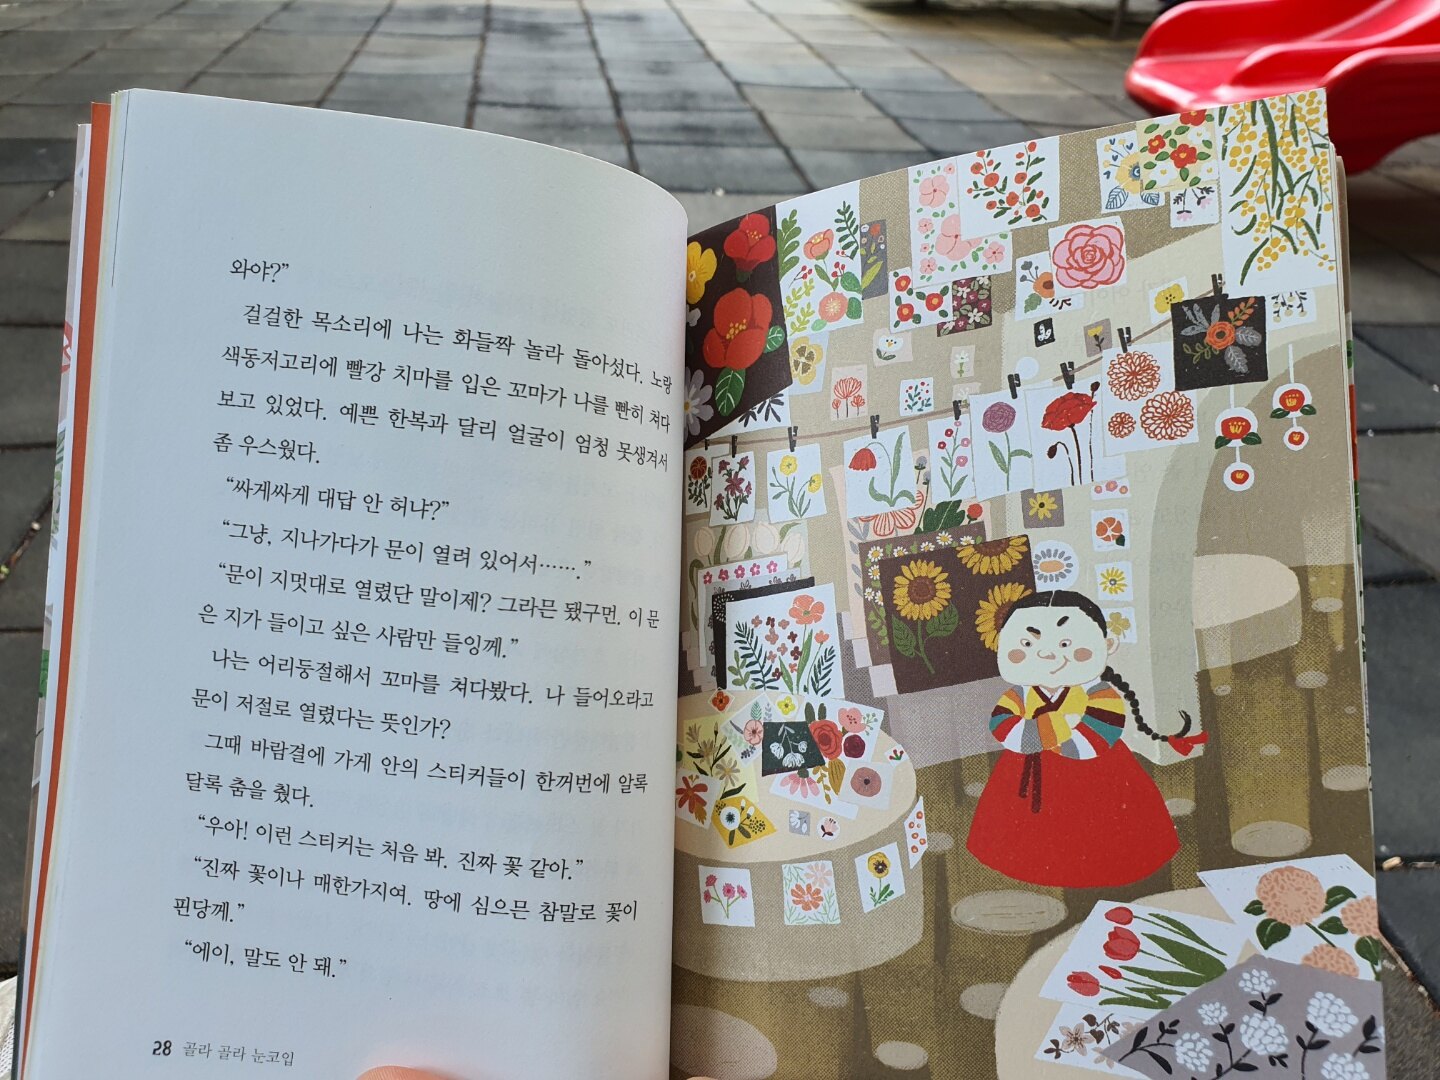 와야?”
걸걸한 목소리에 나는 화들짝 놀라 돌아섰다. 노랑
색동저고리에 빨강 치마를 입은 꼬마가 나를 빤히 쳐다
보고 있었다. 예쁜 한복과 달리 얼굴이 엄청 못생겨서
좀 우스웠다.
“싸게싸게 대답 안 허냐?”
“그냥, 지나가다가 문이 열려 있어서…….”
“문이 지멋대로 열렸단 말이제? 그라믄 됐구먼. 이 문
은 지가 들이고 싶은 사람만 들잉께.”
나는 어리둥절해서 꼬마를 쳐다봤다. 나 들어오라고
문이 저절로 열렸다는 뜻인가?
그때 바람결에 가게 안의 스티커들이 한꺼번에 알록
달록 춤을 췄다.
“우아! 이런 스티커는 처음 봐. 진짜 꽃 같아.”
“진짜 꽃이나 매한가지여. 땅에 심으믄 참말로 꽃이
핀당께.”
“에이, 말도 안 돼.”
28 골라 골라 눈코입